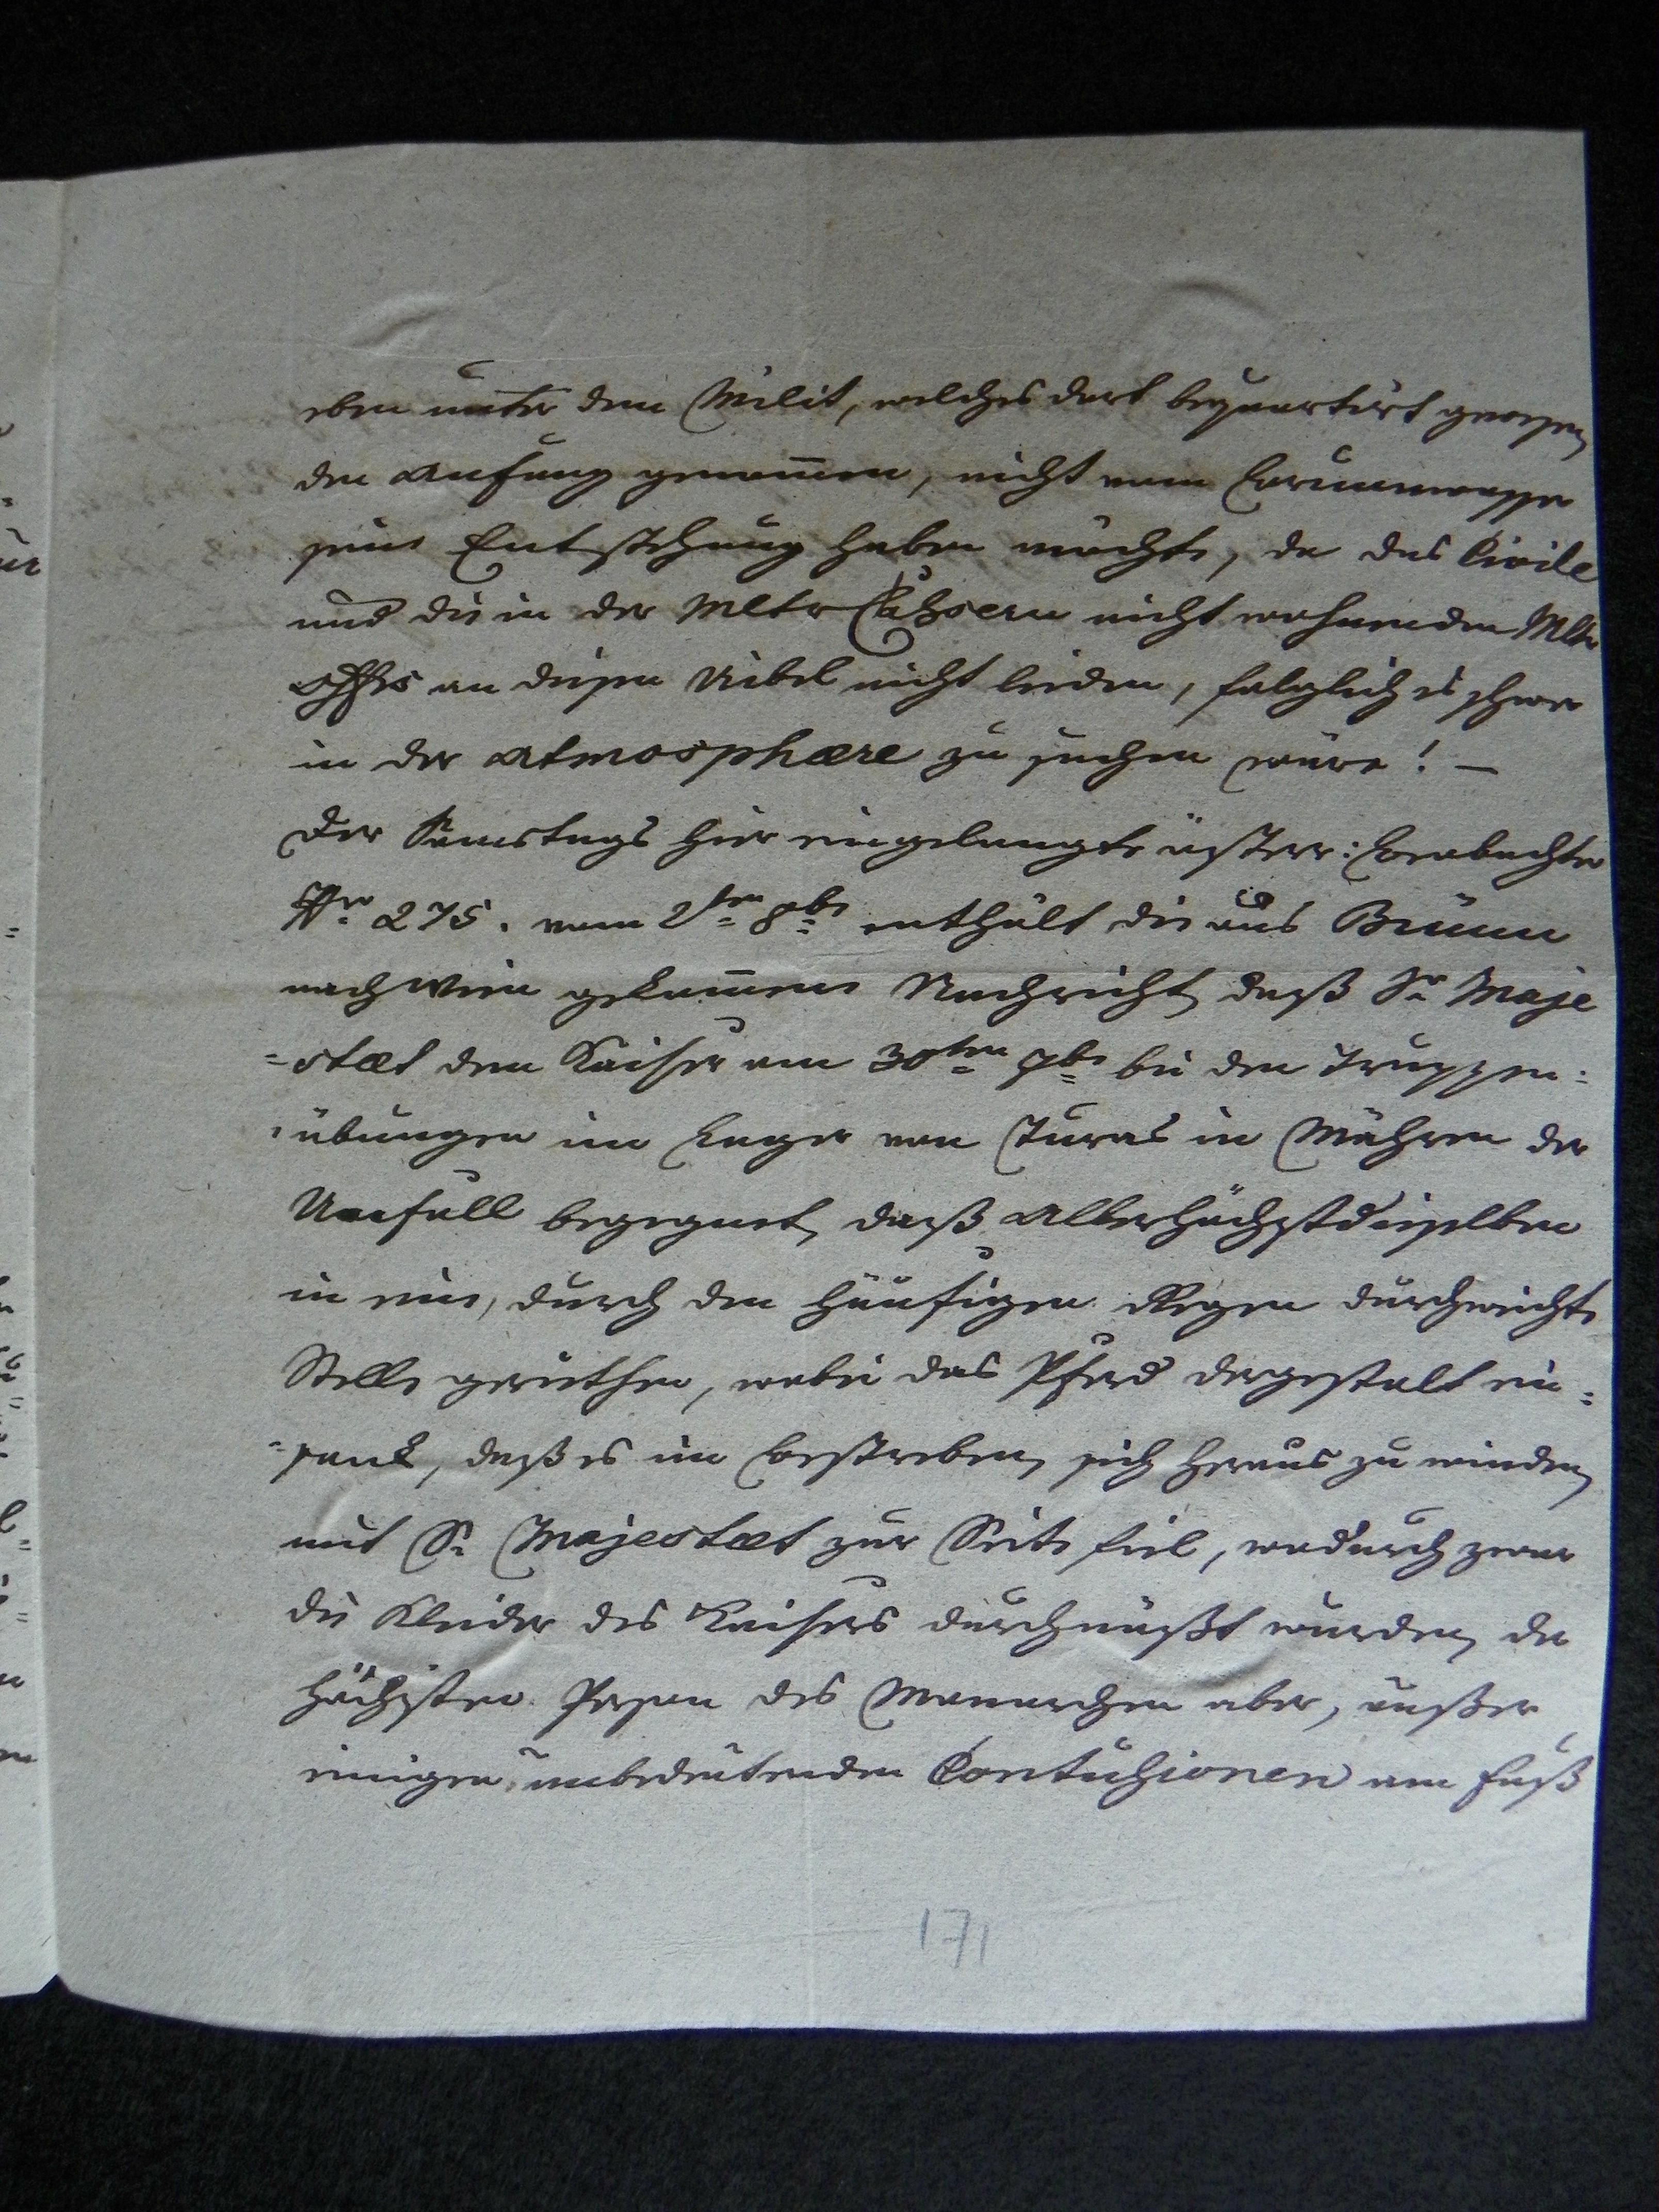 eben unter dem Milit, welches dort bequartirt gewesen
den Anfang genom̅en, nicht vom Brunnwasser
seine Entstehung haben möchte, da das Civile
und die in der Mltr Cahsern nicht wohnenden Mltr
Offrs an diesen Uibel nicht leiden, folglich es schwer
in der Atmosphære zu suchen wäre! —
Der Samstags hier eingelangte österr: Beobachter
Nro 275. vom 2ten 8br enthält die aus Brünn
nach Wien gekom̅ene Nachricht, daß Sr Maje
=stæt dem Kaiser am 30ten 7br bei den Truppen=
=übungen im Lager von Turas in Mähren der
Unfall begegnet, daß Allerhöchstdieselben
in eine, durch den häufigen Regen durchweichte
Stelle geriethen, wobei das Pferd dergestalt ein=
=sank, daß es im Bestreben, sich heraus zu winden,
mit Sr Majestæt zur Seite fiel, wodurch zwar
die Kleider des Kaisers durchnäßt wurden, der
höchsten Person des Monarchen aber, außer
einigen unbedeutenden Contuhsionen am Fuß
171